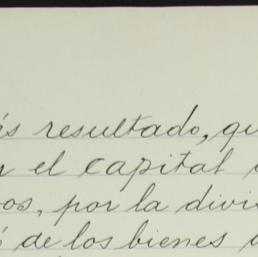 ás resultado, qu
el capital
os, por la divi
de los bienes